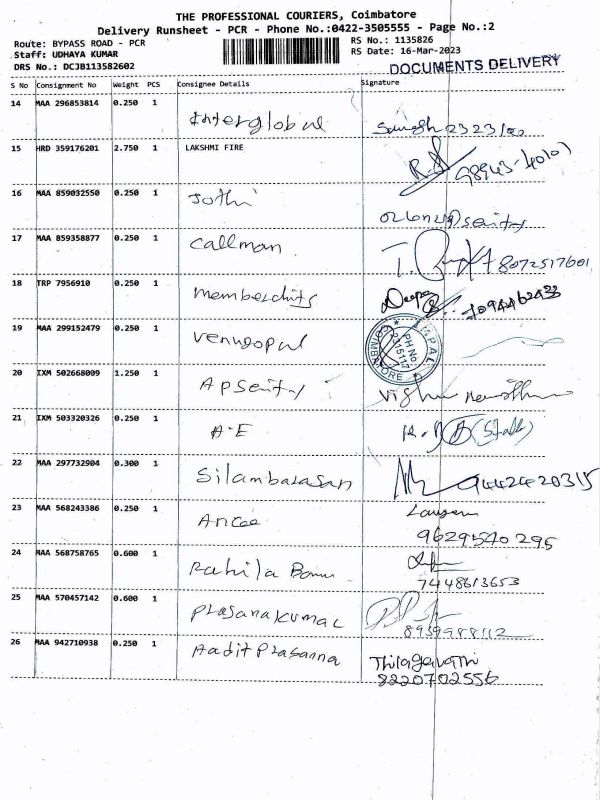 THE PROFESSIONAL COURIERS, Coimbatore
Delivery Runsheet - PCR - Phone No.:0422-3505555 - Page No.:2
Route: BYPASS ROAD - PCR RS No.: 1135826
Staff: UDHAYA KUMAR RS Date: 16-Mar-2023
DRS No.: DCJB113582602 DOCUMENTS DELIVERY
S No Consignment No Weight PCS Consignee Details Signature
14 MAA 296853814 0.250 1
Interglobal
15 HRD 359176201 2.750 1 LAKSHMI FIRE
16 MAA 859032550 0.250 1
Jothi
17 MAA 859358877 0.250 1
Callman
8072517601
18 TRP 7956910 0.250 1
Memberchits Deepa
19 MAA 299152479 0.250 1
Venugopal
COIMBATORE
20 IXM 502668009 1.250 1
21 IXM 503320326 0.250 1
A-E
22 MAA 297732904 0.300 1
Silambarasan 9442420315
23 MAA 568243386 0.250 1
9629540295
24 MAA 568758765 0.600 1
Rahila Banu
7448613653
25 MAA 570457142 0.600 1
Prasanakumar
8939988112
26 MAA 942710938 0.250 1
Aadit Prasanna Thilagavathi
8220702556